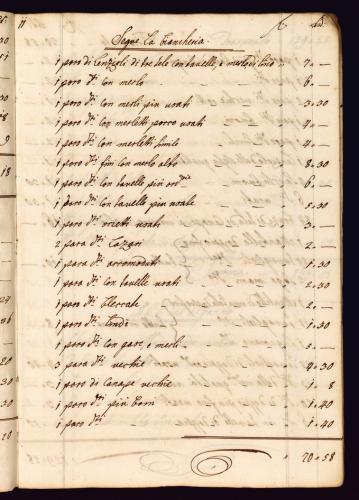 11
Segue La Biancheria
1 paro di Lenzoli di tre tele con tavelle, e merlo di lino 7 -
1 paro dti con merlo 6 -
1 paro dti con merli più usati 3 30
1 paro dti con merletti poco usati 4 -
1 paro dti con merletti simile 4 -
1 paro dti fini con merlo alto 8 30
1 paro dti con tavelle più ordrie 6 -
1 paro dti con tavelle più usate 5 30
1 paro dti usati 3 -
2 para dti 2 -
1 para dti accomodati 1 30
1 para dti con tavelle usati 2 30
1 paro dti 2 -
1 paro dti 1 30
1 paro dti con e merli 2 -
3 para dti vechie 4 30
1 paro di Canape vechie 1 8
1 paro dti più boni 1 40
1 paro dti 1 40
70 58